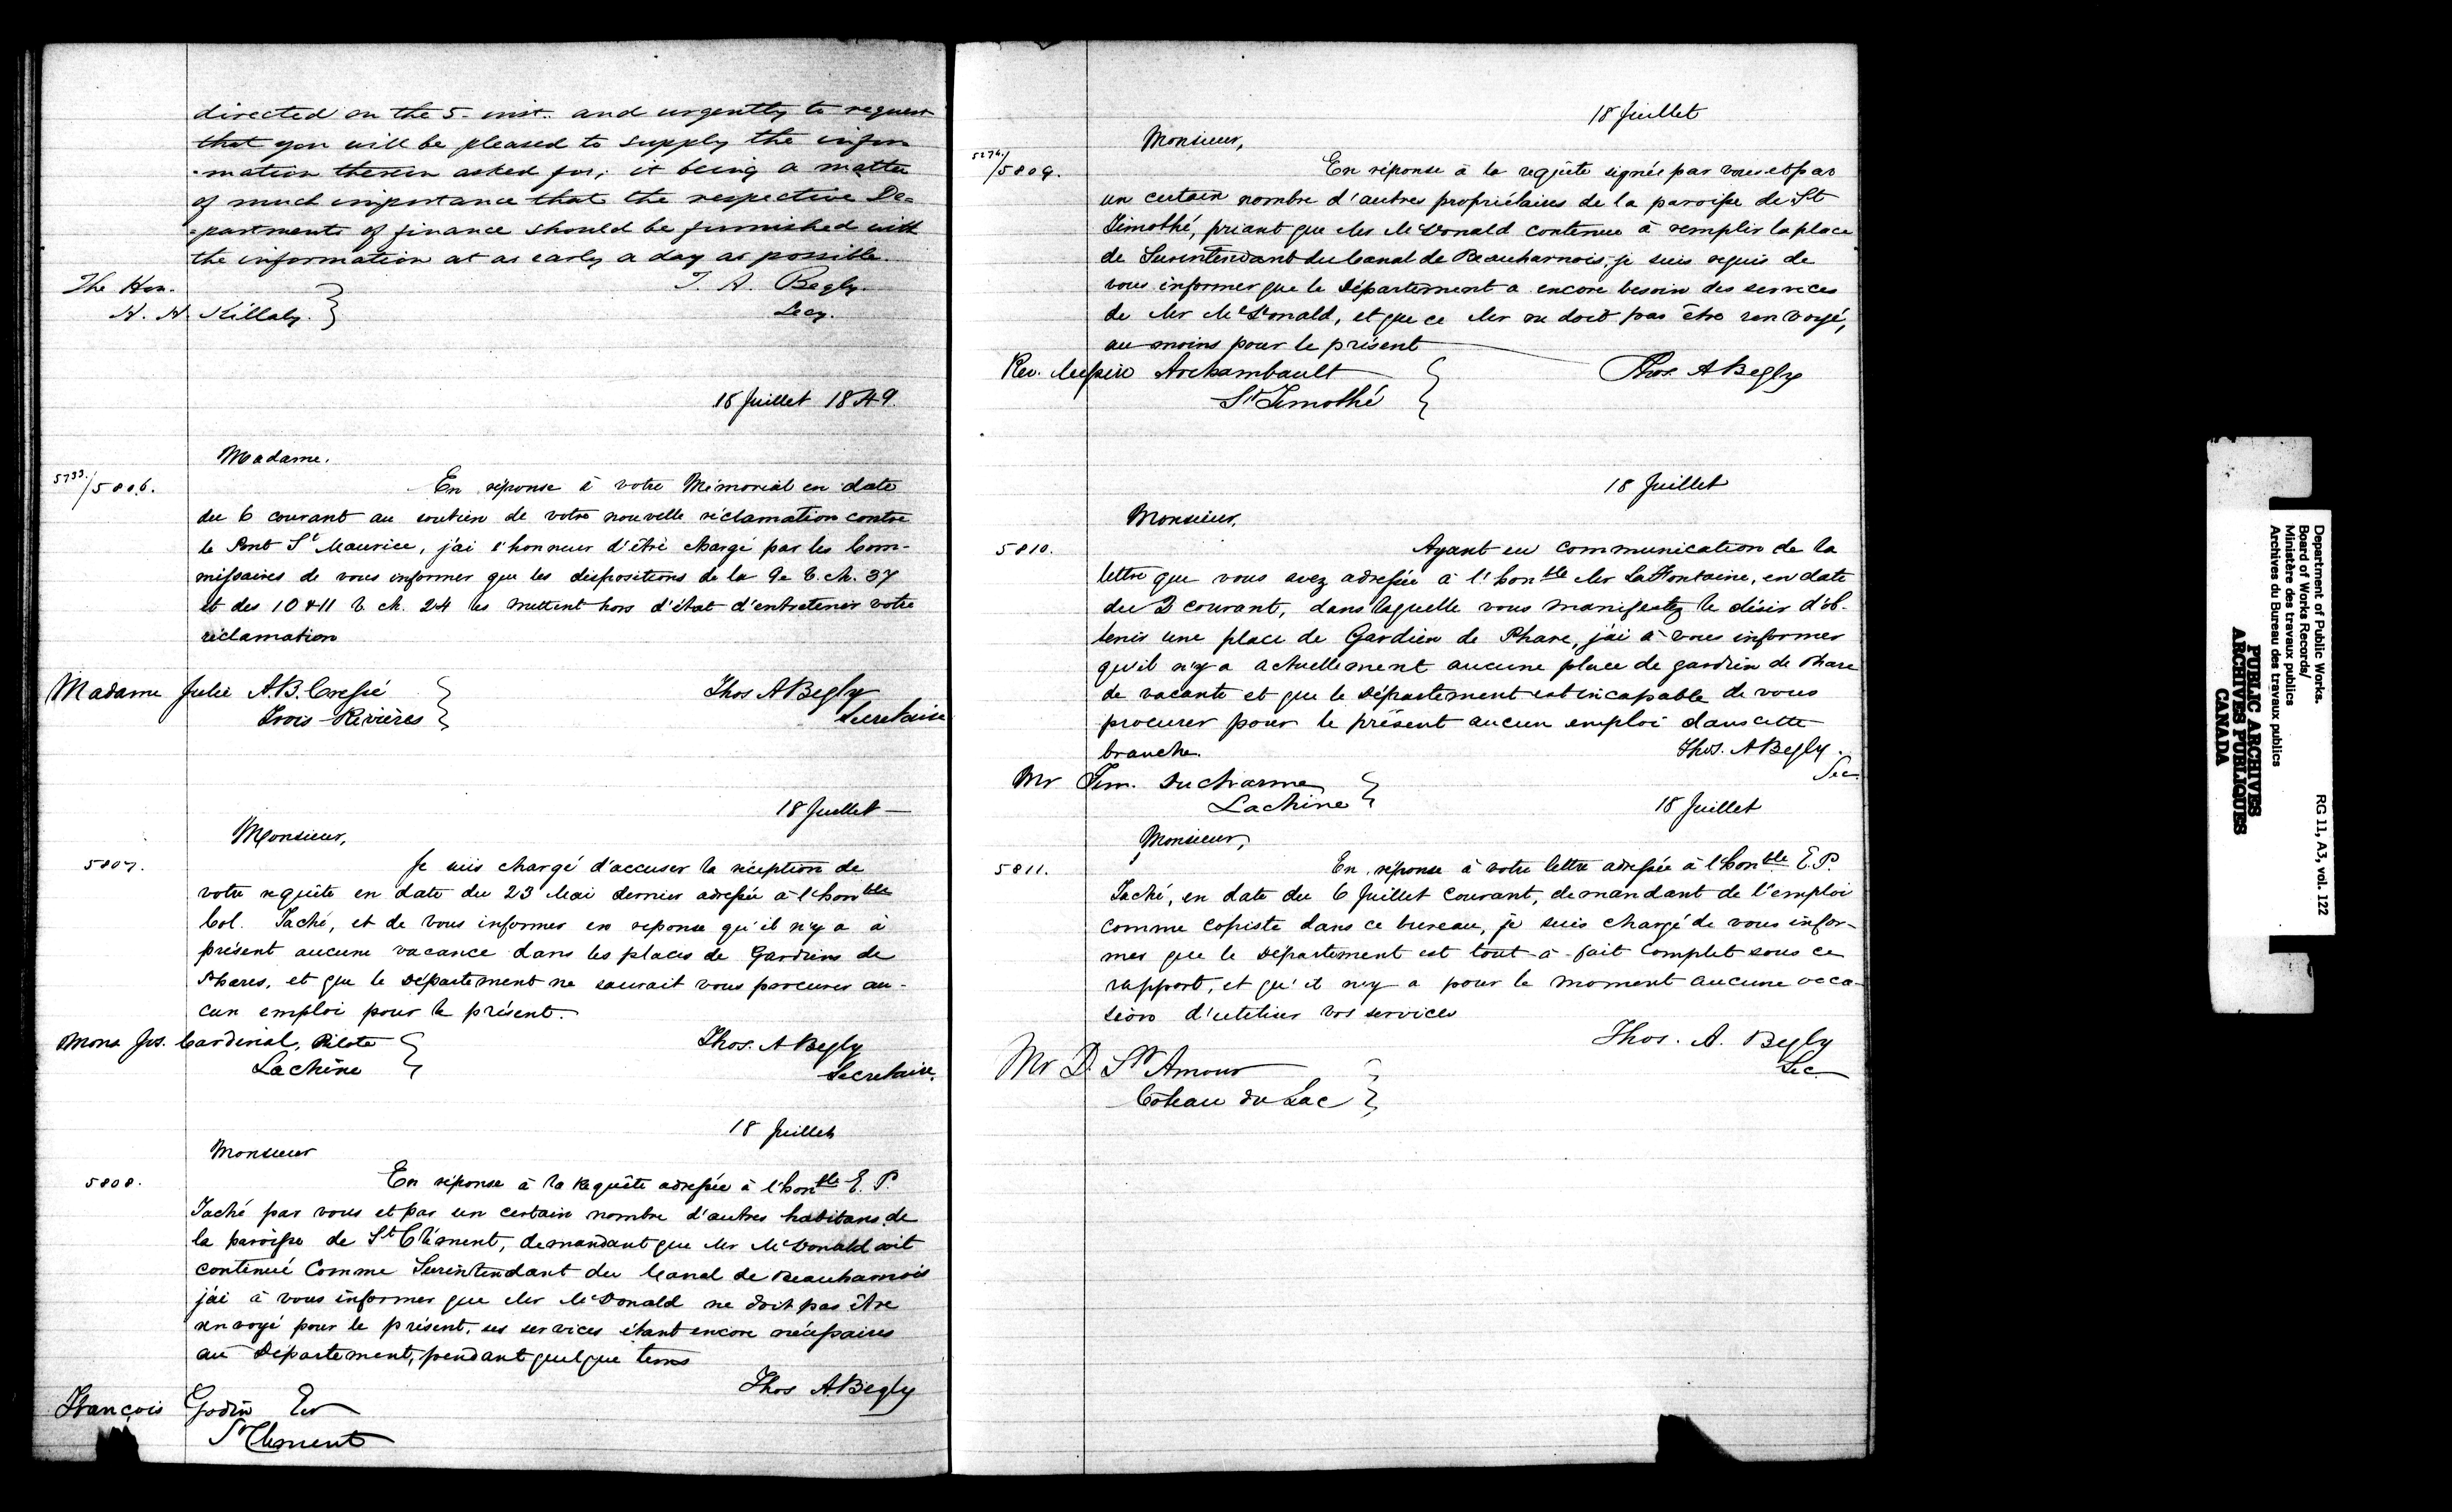 directed on the 5 inst. and urgently to request
that you will be pleased to supply the infor
-mation therein asked for; it being a matter
of much importance that the respective De-
-partments of finance should be furnished with
the information at as early a day as possible.
The Hon.
H. H. Killaly.
T. A. Begly
Secy.
18 Juillet 1849.
Madame.
5733/5806.
En réponse à votre Mémorial en date
du 6 courant au soutien de votre nouvelle réclamation contre
le Pont St Maurice, j'ai l'honneur d'être chargé par les Com-
missaires de vous informer que les dispositions de la 9e V. ch. 37
et des 10 & 11 V. ch. 24 les mettent hors d'état d'entretenir votre
réclamation
Madame Julie A.B. Cressé
Trois-Rivières
Thos A Begly
Secretaire
18 Juillet
Monsieur,
5807.
Je suis chargé d'accuser la réception de
votre requête en date du 23 Mai dernier adressée à l'honble
Col. Taché, et de vous informer en reponse qu'il n'y a à
présent aucune vacance dans les places de Gardiens de
Phares, et que le Département ne saurait vous procurer au-
cun emploi pour le présent.
Mons Jos. Cardinal, Pilote
Lachine
Thos. A Begly
Secretaire.
18 Juillet
Monsieur
5808.
En réponse à la Requête adressée à l'honble E. P.
Taché par vous et par un certain nombre d'autres habitans de
la paroisse de St Clément, demandant que Mr McDonald soit
continué Comme Surintendant du Canal de Beauharnois
j'ai à vous informer que Mr McDonald ne doit pas être
renvoyé pour le présent, ses services étant encore nécessaires
au Département, pendant quelque tems
Thos A. Begly
François Godin Er
St Clement
18 Juillet
Monsieur,
5274/5809.
En réponse à la requête signée par vous et par
un certain nombre d'autres propriétaires de la paroisse de St
Timothé, priant que Mr McDonald continue à remplir la place
de Surintendant du Canal de Beauharnois, je suis requis de
vous informer que le Département a encore besoin des services
de Mr McDonald, et que ce Mr ne doit pas être renvoyé,
au moins pour le présent
Rev. Messire Archambault
St Timothé
Thos. A Begly
18 Juillet
Monsieur,
5810.
Ayant eu communication de la
lettre que vous avez adressée à l'honble Mr LaFontaine, en date
du 2 courant, dans laquelle vous manifestez le désir d'ob-
tenir une place de Gardien de Phare, j'ai à vous informer
qu'il n'y a actuellement aucune place de gardien de Phare
de vacante et que le Département est incapable de vous
procurer pour le présent aucun emploi dans cette
branche.
Thos. A Begly.
Sec
Mr Tim. Ducharme
Lachine
18 Juillet
Monsieur,
5811.
En réponse à votre lettre adressée à l'honble E. P.
Taché, en date du 6 Juillet courant, demandant de l'emploi
comme copiste dans ce bureau, je suis chargé de vous infor-
mer que le Département est tout-à-fait complet sous ce
rapport, et qu'il n'y a pour le moment aucune occa-
sion d'utiliser vos services
Thos. A. Begly
Sec.
Mr D. St Amour
Coteau du Lac
Department of Public Works.
Board of Works Records/
Ministère des travaux publics
Archives du Bureau des travaux publics
RG 11, A3, vol. 122
PUBLIC ARCHIVES
ARCHIVES PUBLIQUES
CANADA